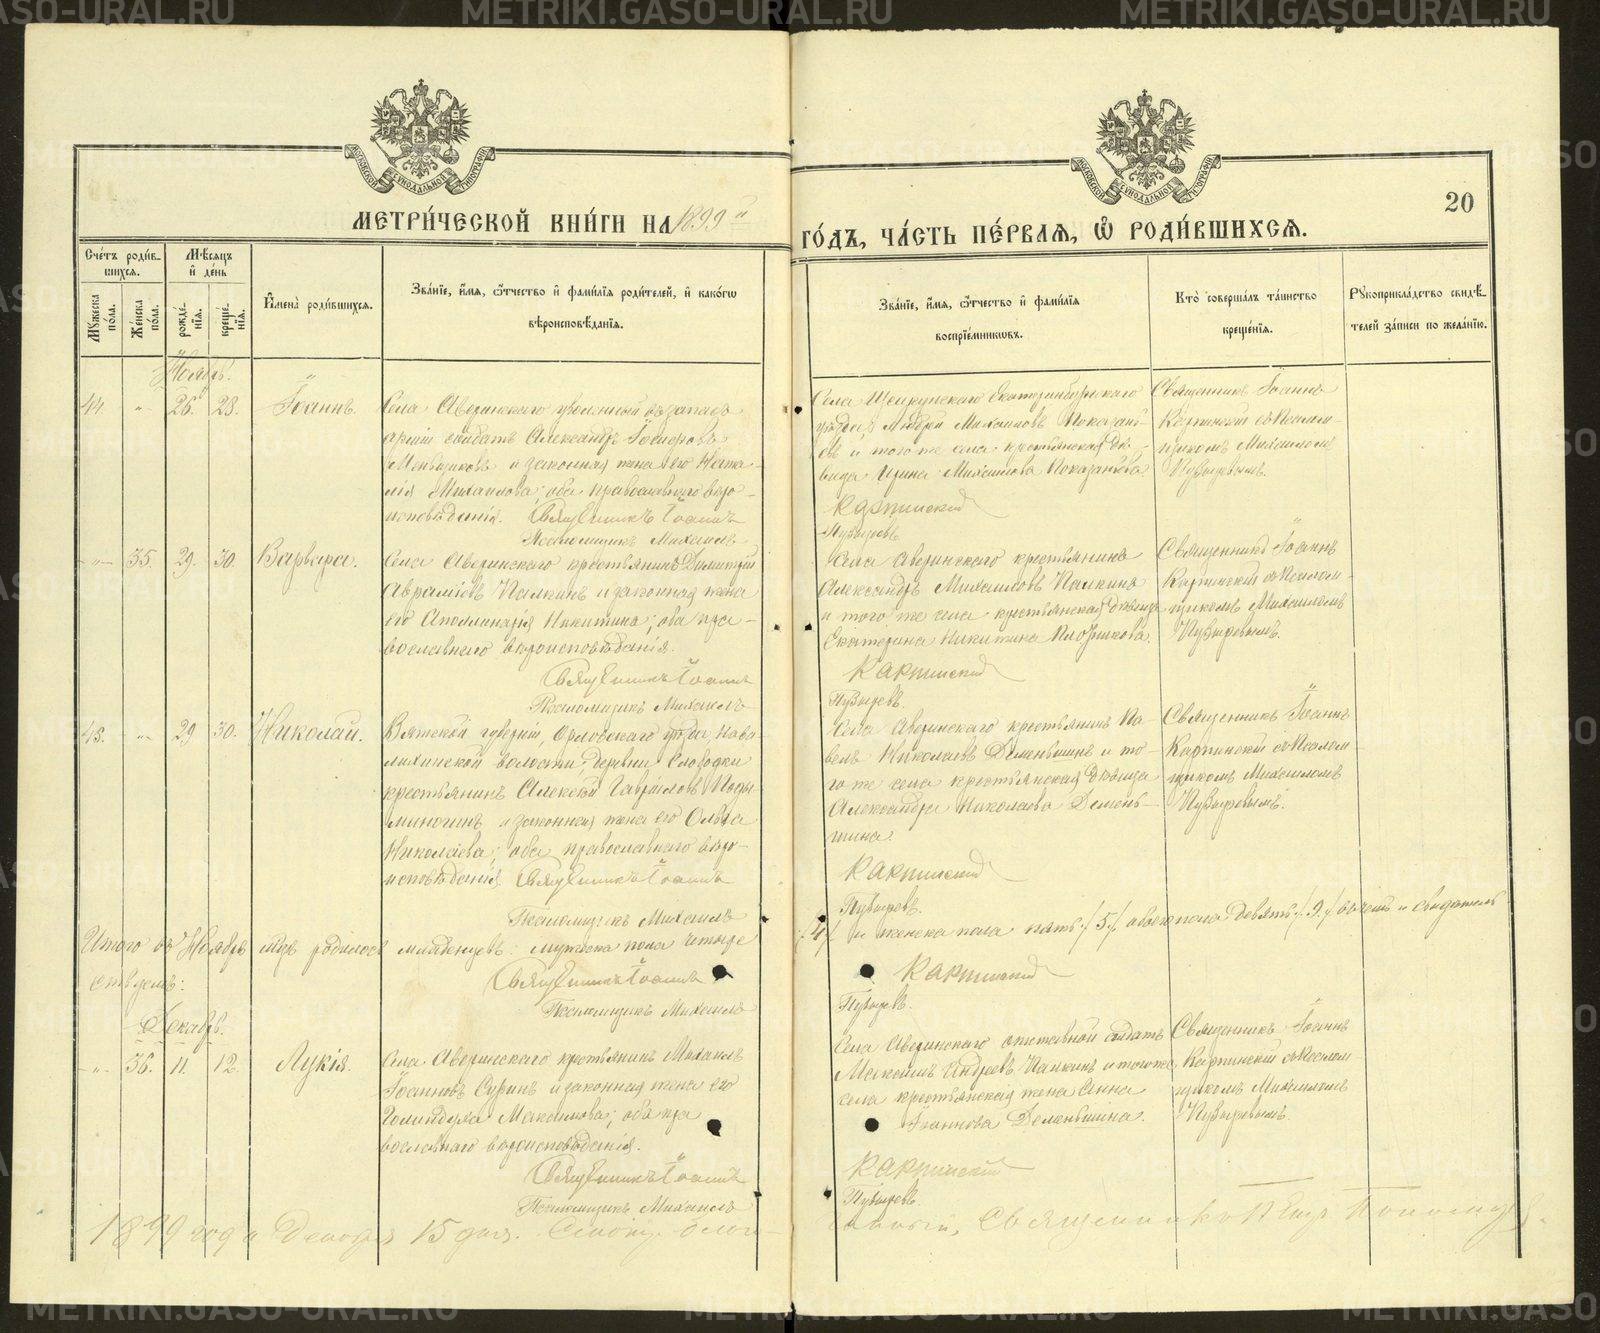 METRIKI.GASO-URAL.RU
МОСКОВСКОЙ СѴНОДАЛЬНОЙ ТИПОГРАФІИ
МОСКОВСКОЙ СѴНОДАЛЬНОЙ ТИПОГРАФІИ
20
МЕТРИ́ЧЕСКОЙ КНИ́ГИ НА 1899й ГО́ДЪ, ЧА́СТЬ ПЕ́РВАЯ, Ѽ РОДИ́ВШИХСЯ.
Сче́тъ роди́вшихся.
Мѣ́сяцъ и҆ де́нь
Мꙋ́жеска по́ла.
Же́нска по́ла.
рожде́нїя.
креще́нїя.
И҆мена̀ роди́вшихся.
Зва́нїе, и҆́мя, ѻ҆́тчество и҆ фами́лїя роди́телей, и҆ како́гѡ вѣроисповѣ́данїя.
Зва́нїе, и҆́мя, ѻ҆́тчество и҆ фами́лїя воспрїе́мникѡвъ.
Кто̀ соверша́лъ та́инство креще́нїя.
Рꙋкоприкла́дство свидѣ́телей за́писи по жела́нїю.
Ноябрь.
44. -"- 26. 28. Іоаннъ.
Села Аверинскаго уволенный въ запасъ
арміи солдатъ Александръ
Меньшиковъ и законная жена его Ната-
лія Михаилова; оба православнаго веро-
исповѣданія. Священникъ Іоаннъ
Псаломщикъ Михаилъ
Села Щелкунскаго Екатеринбургскаго
уѣзда, Андрей Михаиловъ
и того же села крестьянская дѣ-
вица Ирина Михаилова
Карпинскій
Пузыревъ
Священникъ Іоаннъ
Карпинскій съ Псалом-
щикомъ Михаиломъ
Пузыревымъ.
-"- 35. 29. 30. Варвара.
Села Аверинскаго крестьянинъ Димитрій
Авраміевъ Палкинъ и законная жена
его Аполлинарія Никитина; оба пра-
вославнаго вѣроисповѣданія.
Священникъ Іоаннъ
Псаломщикъ Михаилъ
Села Аверинскаго крестьянинъ
Александръ Михаиловъ Палкинъ
и того же села крестьянская дѣвица
Екатерина Никитина Плотникова.
Карпинскій
Пузыревъ.
Священникъ Іоаннъ
Карпинскій съ Псалом-
щикомъ Михаиломъ
Пузыревымъ.
45. -"- 29 30. Николай.
Вятской губерніи, Орловскаго уѣзда,
волости, деревни Слободки
крестьянинъ Алексѣй Гавріиловъ
и законная жена его Ольга
Николаева; оба православнаго вѣро-
исповѣданія Священникъ Іоаннъ
Псаломщикъ Михаилъ
Села Аверинскаго крестьянинъ Па-
велъ Николаевъ Деменьшинъ и то-
го же села крестьянская дѣвица
Александра Николаева Демень-
шина.
Карпинскій
Пузыревъ.
Священникъ Іоаннъ
Карпинскій съ Псалом-
щикомъ Михаиломъ
Пузыревымъ.
Итого въ Ноябрѣ м-цѣ родилось младенцевъ: мужеска пола четыре /4/ и женска пола пять /5/, обоего пола девять /9/ въ чемъ и свидѣтель-
ствуемъ:
Священникъ Іоаннъ Карпинскій
Псаломщикъ Михаилъ Пузыревъ.
Декабрь.
-"- 36. 11. 12. Лукія.
Села Аверинскаго крестьянинъ Михаилъ
Іоанновъ Суринъ и законная жена его
Голиндуха Максимова; оба пра
вославнаго вѣроисповѣданія.
Священникъ Іоаннъ
Псаломщикъ Михаилъ
Села Аверинскаго отставной солдатъ
Максимъ Андреевъ Палкинъ и того же
села крестьянская жена Анна
Іоаннова Деменьшина.
Карпинскій
Пузыревъ.
Священникъ Іоаннъ
Карпинскій съ Псалом-
щикомъ Михаиломъ
Пузыревымъ.
1899 года Декабря 15 дня.